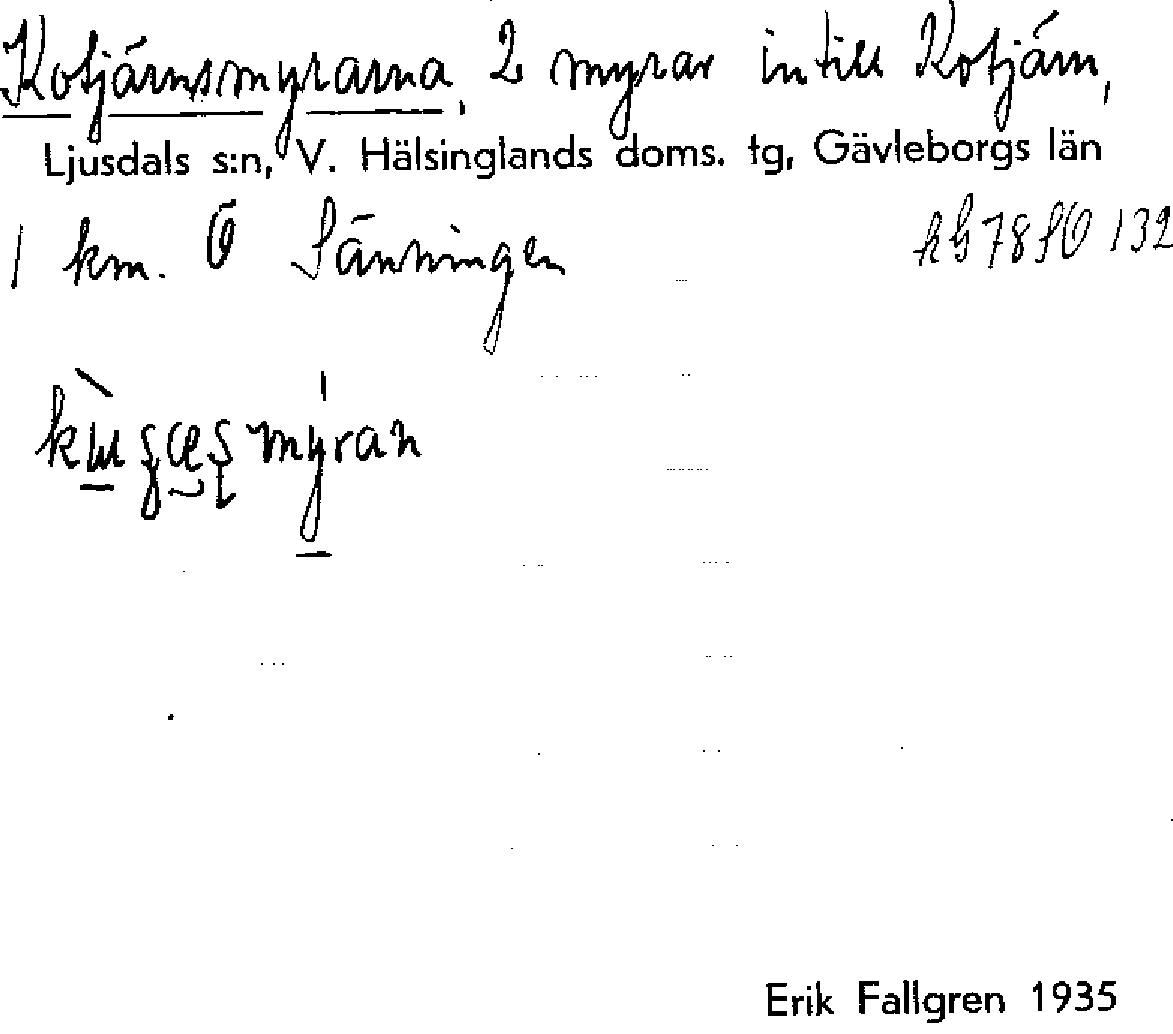 Kotjärnsmyrarna, 2 myrar intill Kotjärn,
Ljusdals s:n, V. Hälsinglands doms. tg, Gävleborgs län
1 km. Ö Sänningen
132
Erik Fallgren 1935